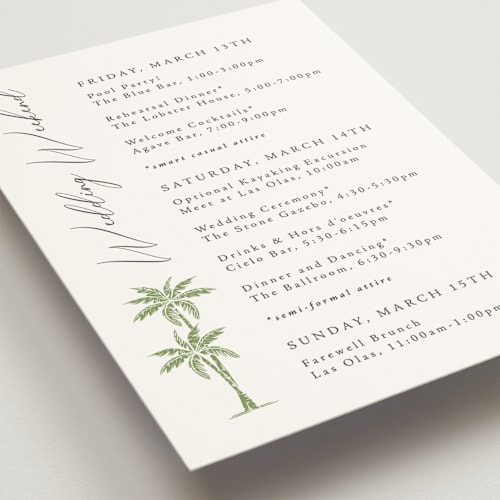 Wedding Weekend
FRIDAY, MARCH 13TH
Pool Party!
The Blue Bar, 1:00-3:00pm
Rehearsal Dinner*
The Lobster House, 5:00-7:00pm
Welcome Cocktails*
Agave Bar, 7:00-9:00pm
*smart casual attire
SATURDAY, MARCH 14TH
Optional Kayaking Excursion
Meet at Las Olas, 10:00am
Wedding Ceremony*
The Stone Gazebo, 4:30-5:30pm
Drinks & Hors d'oeuvres*
Cielo Bar, 5:30-6:15pm
Dinner and Dancing*
The Ballroom, 6:30-9:30pm
*semi-formal attire
SUNDAY, MARCH 15TH
Farewell Brunch
Las Olas, 11:00am-1:00pm